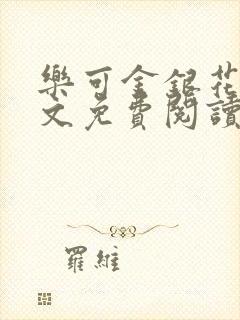 樂可金銀花
文免費閱讀
羅維